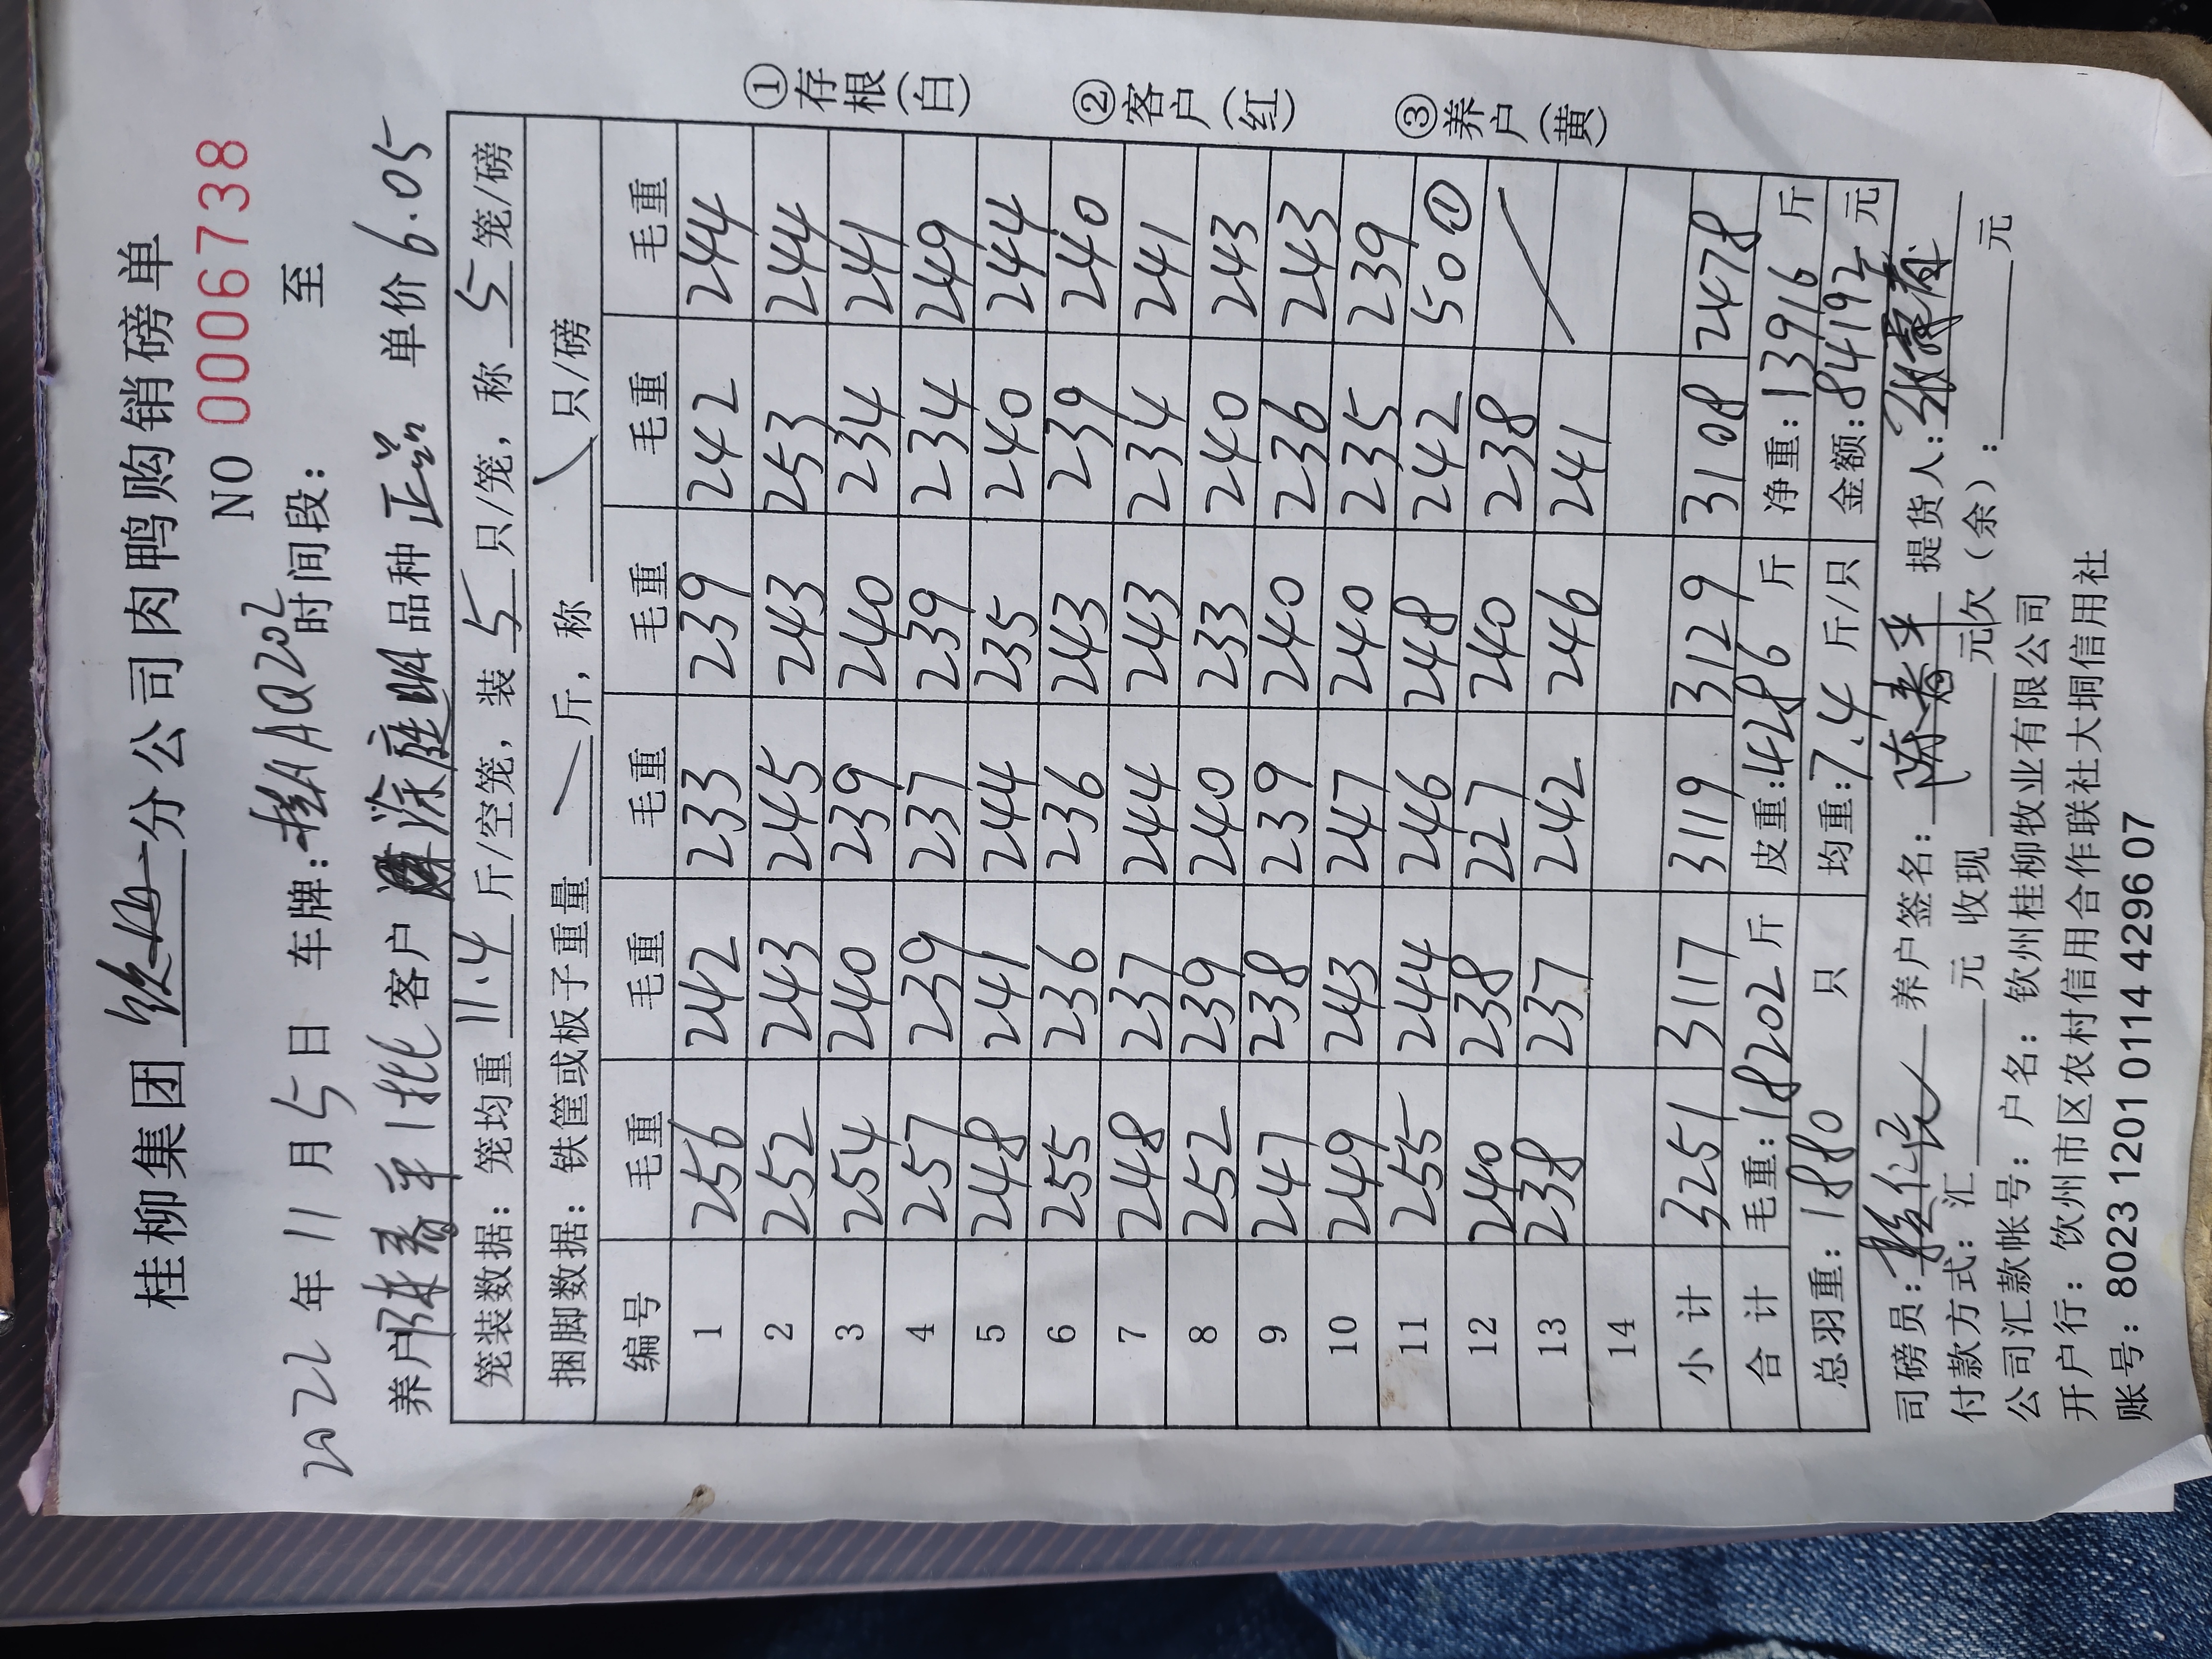 桂柳集团 钦州 分公司肉鸭购销磅单
NO 0006738
2022 年 11 月 5 日 车牌: 桂AAQ202 时间段: 至
养户 陈春平1批 客户 涂庭明 品种 正品 单价 6.05
笼装数据: 笼均重 11.4 斤/空笼, 装 5 只/笼, 称 5 笼/磅
捆脚数据: 铁筐或板子重量 / 斤, 称 / 只/磅
编号 毛重 毛重 毛重 毛重 毛重 毛重
1 256 242 233 239 242 244
2 252 243 245 243 253 244
3 254 240 239 240 234 241
4 257 239 237 239 234 249
5 248 241 244 235 240 244
6 255 236 236 243 239 240
7 248 237 244 243 234 241
8 252 239 240 233 240 243
9 247 238 239 240 236 243
10 249 243 247 240 235 239
11 255 244 246 248 242 50①
12 240 238 227 240 238 /
13 238 237 242 246 241
14
小计 3251 3117 3119 3129 3108 2478
合计 毛重: 18202 斤 皮重: 4286 斤 净重: 13916 斤
总羽重: 1880 只 均重: 7.4 斤/只 金额: 84192 元
司磅员: 养户签名: 陈春平 提货人:
付款方式: 汇 元 收现 元欠(余): 元
公司汇款帐号: 户名: 钦州桂柳牧业有限公司
开户行: 钦州市区农村信用合作联社大垌信用社
账号: 8023 1201 0114 4296 07
①存根(白)
②客户(红)
③养户(黄)